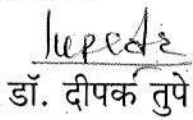 डॉ. दीपक तुपे